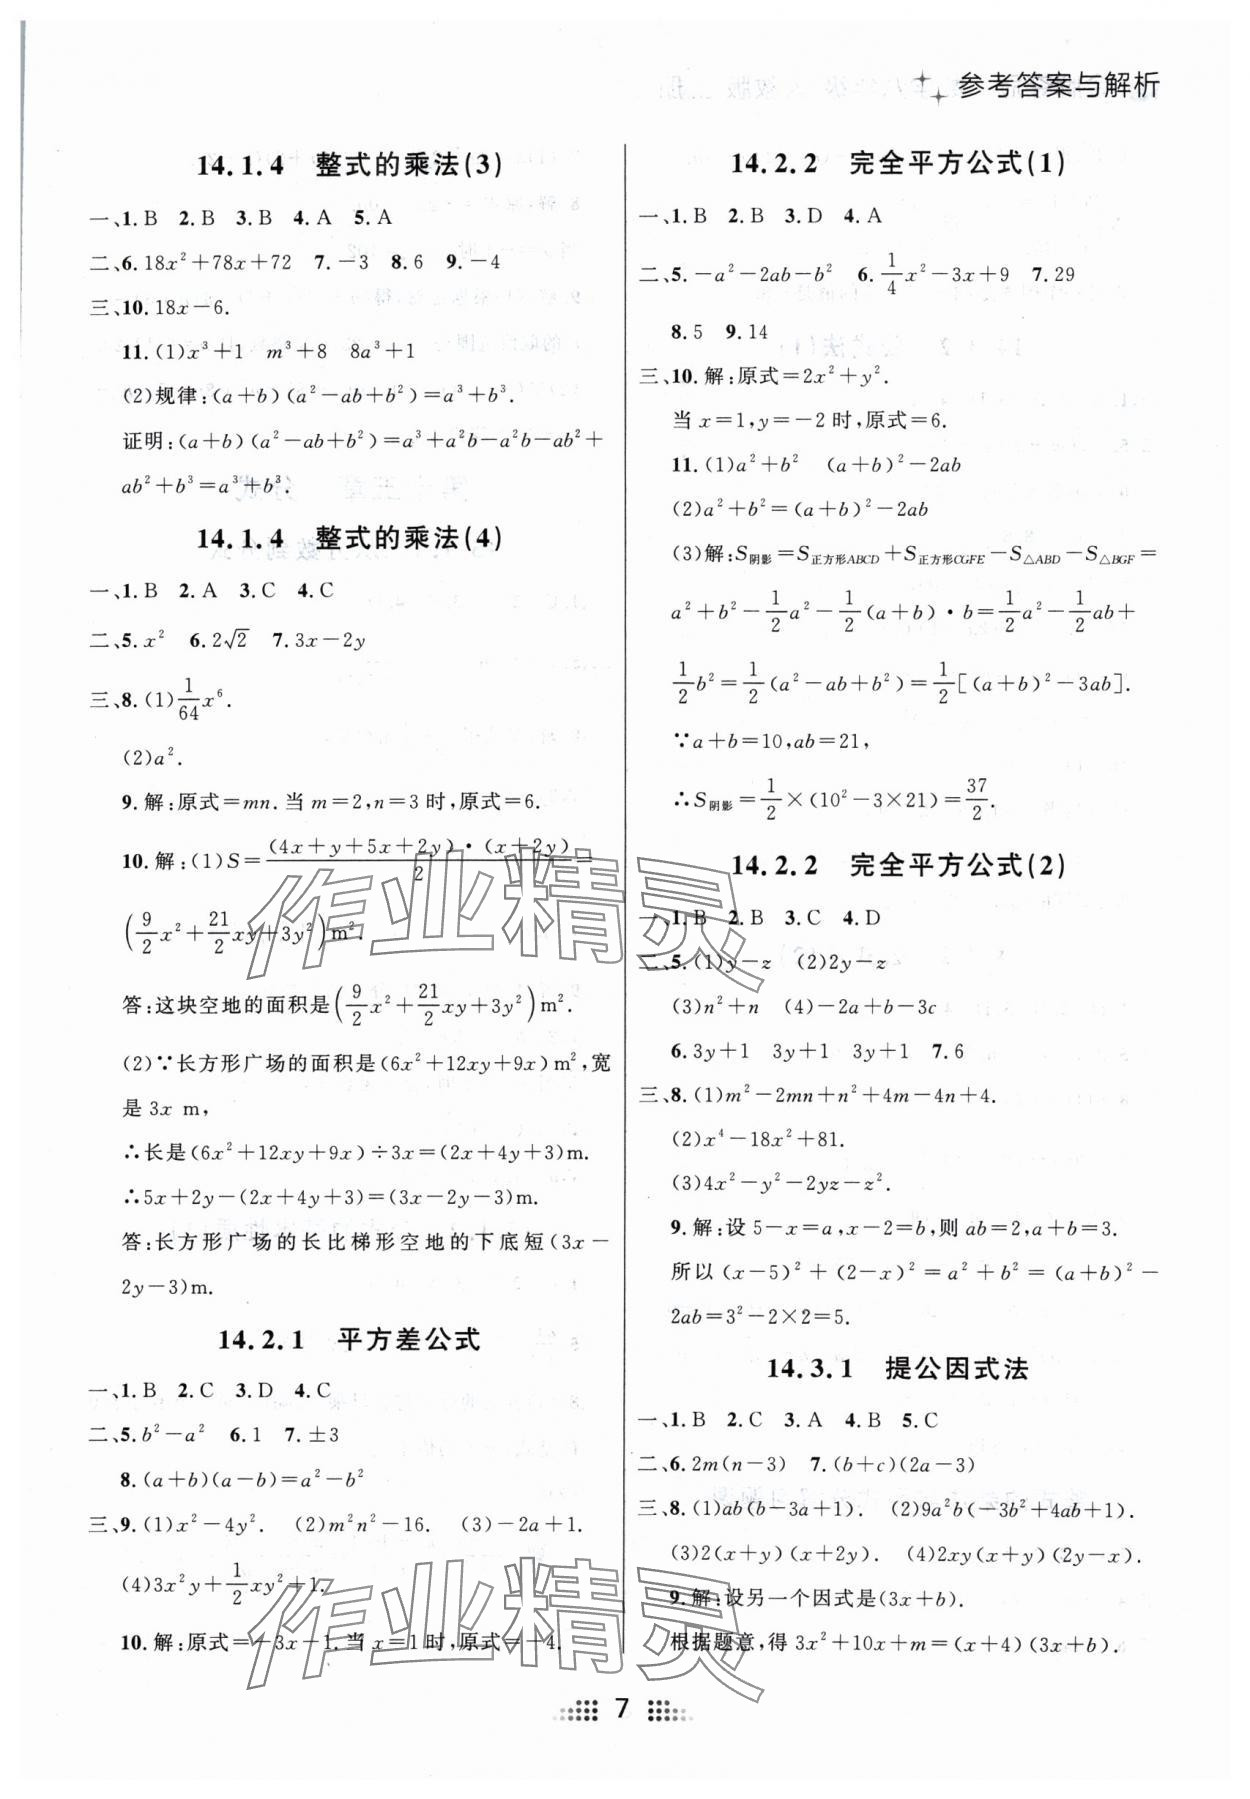 参考答案与解析
14.1.4 整式的乘法(3)
一、1.B 2.B 3.B 4.A 5.A
二、6.18x²+78x+72 7.-3 8.6 9.-4
三、10.18x-6.
11.(1)x³+1 m³+8 8a³+1
(2)规律:(a+b)(a²-ab+b²)=a³+b³.
证明:(a+b)(a²-ab+b²)=a³+a²b-a²b-ab²+
ab²+b³=a³+b³.
14.1.4 整式的乘法(4)
一、1.B 2.A 3.C 4.C
二、5.x² 6.2√2 7.3x-2y
三、8.(1)1/64x⁶.
(2)a².
9.解:原式=mn.当m=2,n=3时,原式=6.
10.解:(1)S=(4x+y+5x+2y)·(x+2y)/2=
(9/2x²+21/2xy+3y²)m².
答:这块空地的面积是(9/2x²+21/2xy+3y²)m².
(2)∵长方形广场的面积是(6x²+12xy+9x)m²,宽
是3x m,
∴长是(6x²+12xy+9x)÷3x=(2x+4y+3)m.
∴5x+2y-(2x+4y+3)=(3x-2y-3)m.
答:长方形广场的长比梯形空地的下底短(3x-
2y-3)m.
14.2.1 平方差公式
一、1.B 2.C 3.D 4.C
二、5.b²-a² 6.1 7.±3
8.(a+b)(a-b)=a²-b²
三、9.(1)x²-4y². (2)m²n²-16. (3)-2a+1.
(4)3x²y+1/2xy²+1.
10.解:原式=-3x-1.当x=1时,原式=-4.
14.2.2 完全平方公式(1)
一、1.B 2.B 3.D 4.A
二、5.-a²-2ab-b² 6.1/4x²-3x+9 7.29
8.5 9.14
三、10.解:原式=2x²+y².
当x=1,y=-2时,原式=6.
11.(1)a²+b² (a+b)²-2ab
(2)a²+b²=(a+b)²-2ab
(3)解:S阴影=S正方形ABCD+S正方形CGFE-S△ABD-S△BGF=
a²+b²-1/2a²-1/2(a+b)·b=1/2a²-1/2ab+
1/2b²=1/2(a²-ab+b²)=1/2[(a+b)²-3ab].
∵a+b=10,ab=21,
∴S阴影=1/2×(10²-3×21)=37/2.
14.2.2 完全平方公式(2)
一、1.B 2.B 3.C 4.D
二、5.(1)y-z (2)2y-z
(3)n²+n (4)-2a+b-3c
6.3y+1 3y+1 3y+1 7.6
三、8.(1)m²-2mn+n²+4m-4n+4.
(2)x⁴-18x²+81.
(3)4x²-y²-2yz-z².
9.解:设5-x=a,x-2=b,则ab=2,a+b=3.
所以(x-5)²+(2-x)²=a²+b²=(a+b)²-
2ab=3²-2×2=5.
14.3.1 提公因式法
一、1.B 2.C 3.A 4.B 5.C
二、6.2m(n-3) 7.(b+c)(2a-3)
三、8.(1)ab(b-3a+1). (2)9a²b(-3b²+4ab+1).
(3)2(x+y)(x+2y). (4)2xy(x+y)(2y-x).
9.解:设另一个因式是(3x+b).
根据题意,得3x²+10x+m=(x+4)(3x+b).
7
作业精灵
作业精灵